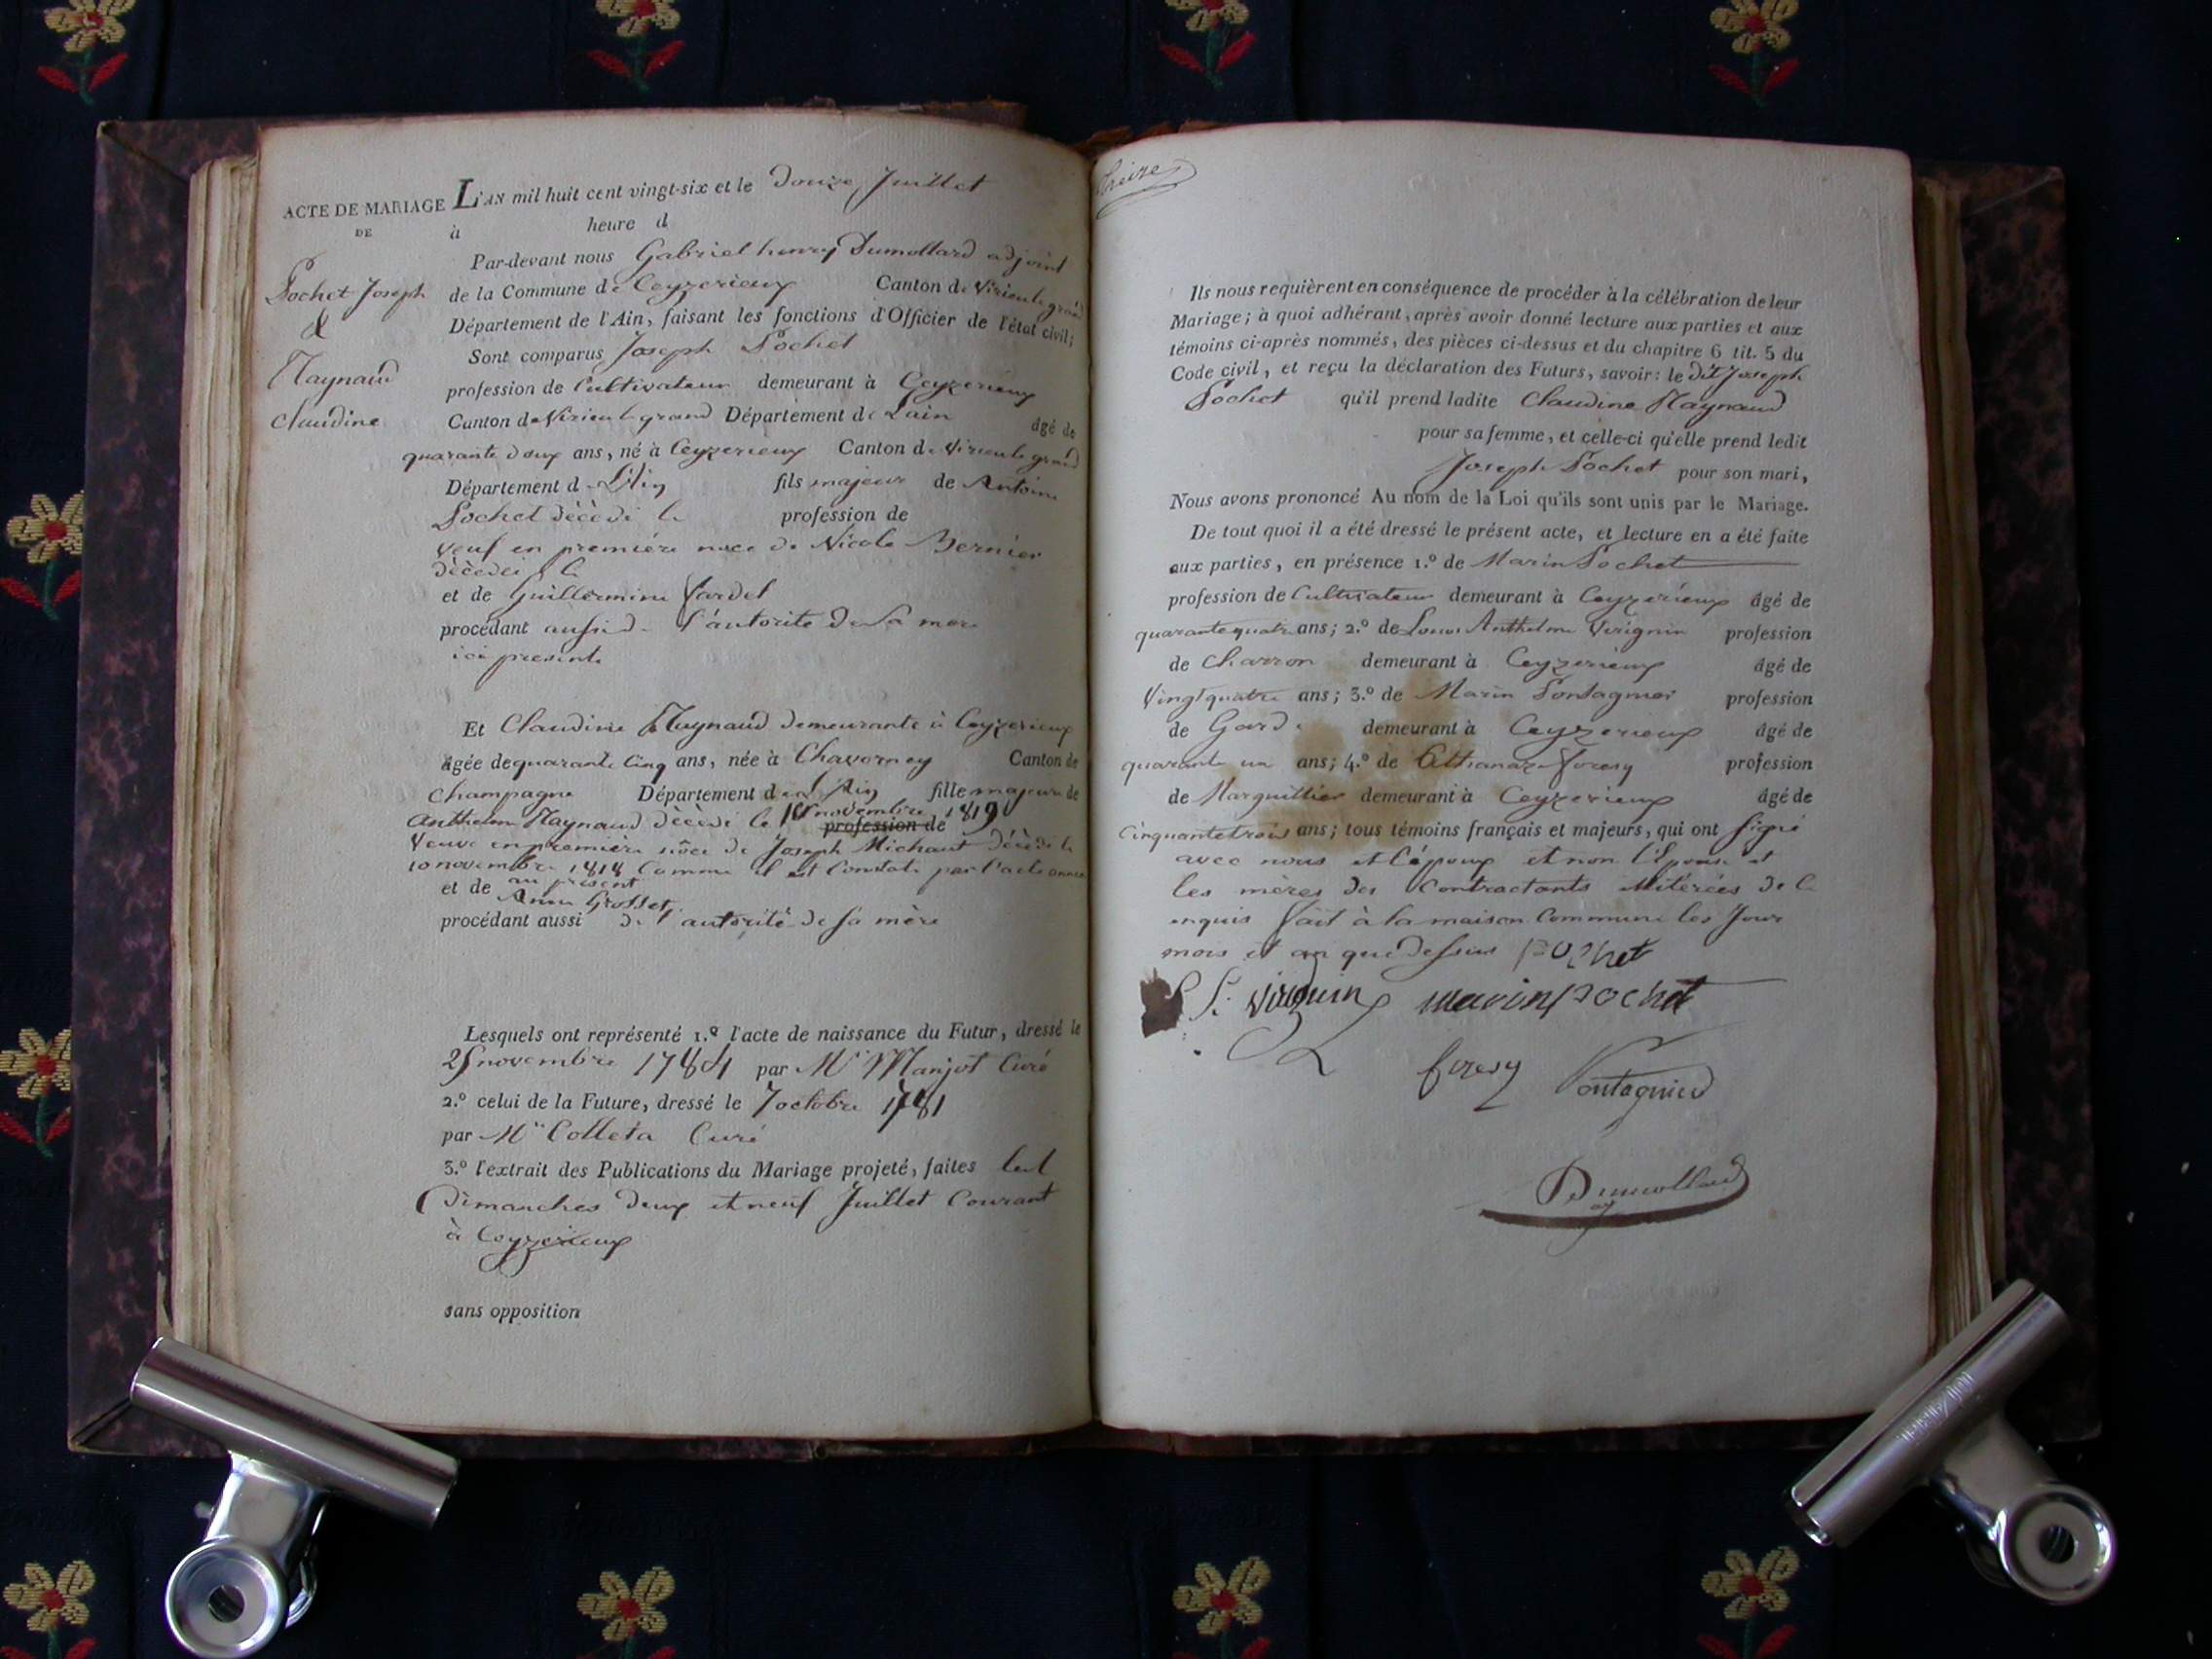 ACTE DE MARIAGE
DE
Pochet Joseph
&
Raynaud
claudine
L'AN mil huit cent vingt-six et le douze Juillet
à heure d
Par-devant nous Gabriel henry Dumollard adjoint
de la Commune de Ceyzerieux Canton de Virieu le grand
Département de l'Ain, faisant les fonctions d'Officier de l'état civil;
Sont comparus Joseph Pochet
profession de Cultivateur demeurant à Ceyzerieux
Canton de Virieu le grand Département de Lain âgé de
quarante deux ans, né à Ceyzerieux Canton de Virieu le grand
Département d L'Ain fils majeur de Antoine
Pochet décédé le profession de
veuf en première noce de Nicole Bernier
décédée le
et de Guillermine Jardet
procédant aussi de l'autorité de Sa mere
ici presente
Et Claudine Raynaud demeurante à Ceyzerieux
âgée de quarante Cinq ans, née à Chavorney Canton de
Champagne Département de l'Ain fille majeure de
Anthelme Raynaud décédé le novembre 1819 profession de
Veuve en premiere nôce de Joseph Michaut décédé le
10 novembre 1818 Comme il est Constaté par l'acte annexé
au présent
et de Anne Grosset
procédant aussi de l'autorité de sa mère
Lesquels ont représenté 1.º l'acte de naissance du Futur, dressé le
novembre 1784 par Mr Manjot Curé
2.º celui de la Future, dressé le 7 octobre 1781
par Mr Colleta Curé
3.º l'extrait des Publications du Mariage projeté, faites les
Dimanches deux et neuf Juillet Courant
à Ceyzerieux
sans opposition
treize
Ils nous requièrent en conséquence de procéder à la célébration de leur
Mariage; à quoi adhérant, après avoir donné lecture aux parties et aux
témoins ci-après nommés, des pièces ci-dessus et du chapitre 6 tit. 5 du
Code civil, et reçu la déclaration des Futurs, savoir: le dit Joseph
Pochet qu'il prend ladite Claudine Raynaud
pour sa femme, et celle-ci qu'elle prend ledit
Joseph Pochet pour son mari,
Nous avons prononcé Au nom de la Loi qu'ils sont unis par le Mariage.
De tout quoi il a été dressé le présent acte, et lecture en a été faite
aux parties, en présence 1.º de Marin Pochet
profession de Cultivateur demeurant à Ceyzérieux âgé de
quarante quatre ans; 2.º de Louis Anthelme Virignin profession
de Charron demeurant à Ceyzerieux âgé de
Vingt quatre ans; 3.º de Marin Pontagnier profession
de Garde demeurant à Ceyzerieux âgé de
quarante un ans; 4.º de Athanaze foresy profession
de Marguillier demeurant à Ceyzerieux âgé de
Cinquante trois ans; tous témoins français et majeurs, qui ont signé
avec nous et l'époux et non l'Epouse et
les mères des Contractants illitérées de ce
enquis fait à la maison Commune les Jour
mois et an que dessus pochet
Virignin marin pochet
foresy Pontagnier
Dumollard